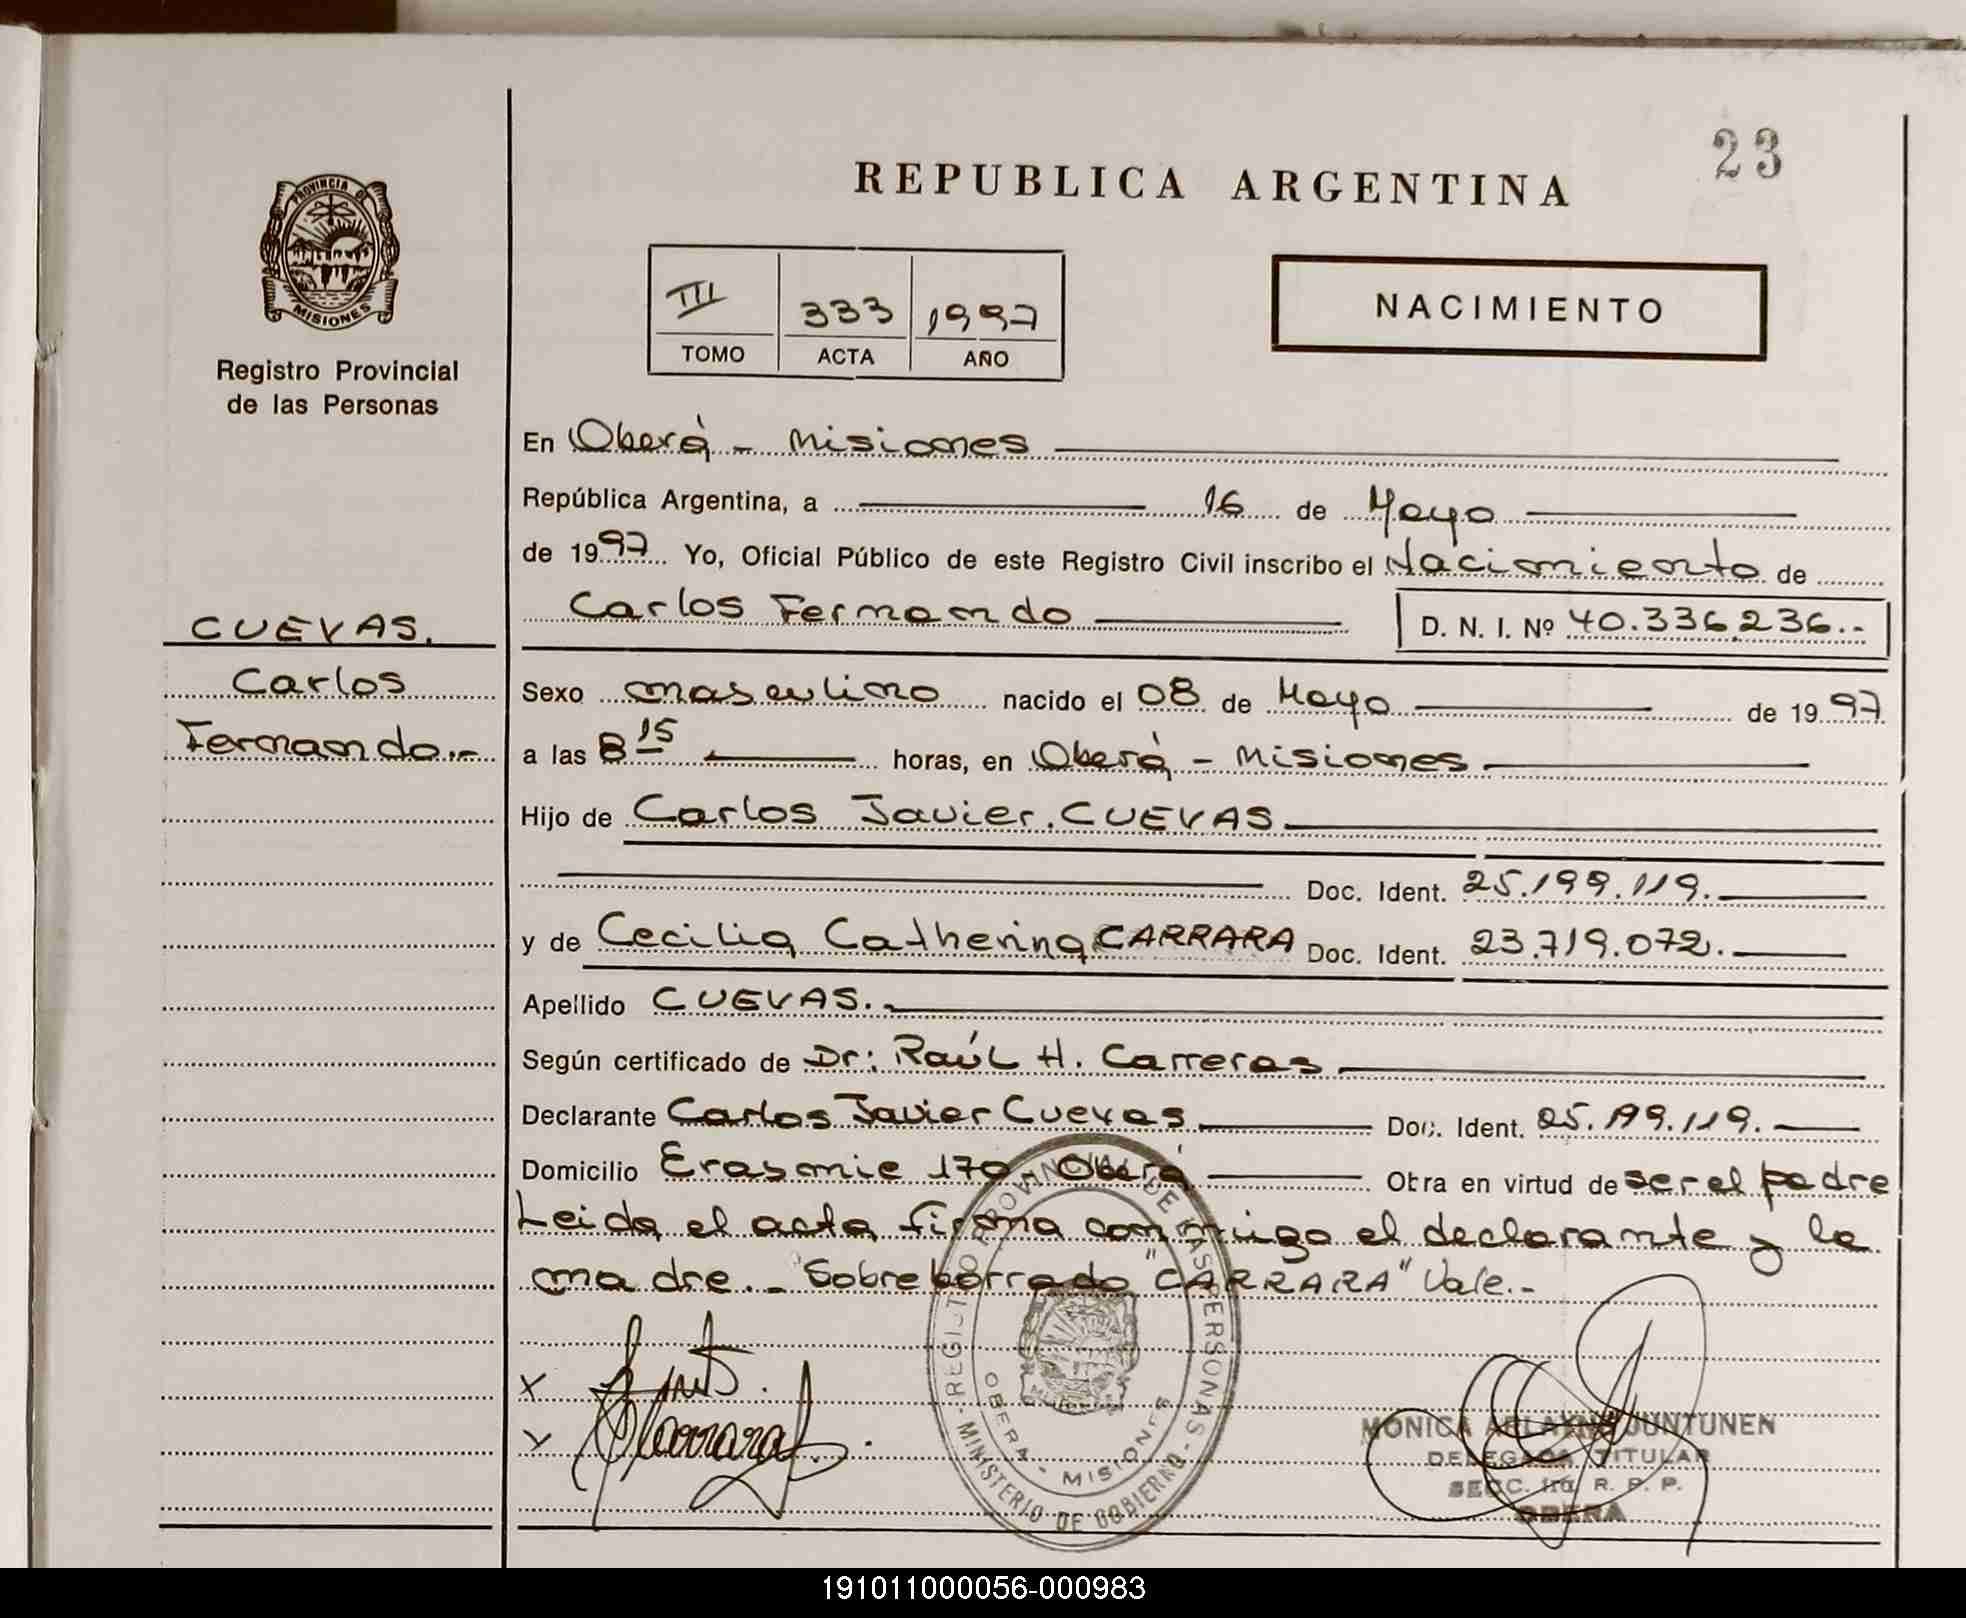 23
REPUBLICA ARGENTINA
PROVINCIA DE
MISIONES
Registro Provincial
de las Personas
III 333 1997
TOMO ACTA AÑO
NACIMIENTO
En Oberá - Misiones
República Argentina, a 16 de Mayo
de 1997 Yo, Oficial Público de este Registro Civil inscribo el Nacimiento de
Carlos Fernando D. N. I. Nº 40.336.236.-
CUEVAS.
Carlos
Fernando.-
Sexo masculino nacido el 08 de Mayo de 1997
a las 8 15 horas, en Oberá - Misiones
Hijo de Carlos Javier. CUEVAS
Doc. Ident. 25.199.119.
y de Cecilia Catherina CARRARA Doc. Ident. 23.719.072.
Apellido CUEVAS.-
Según certificado de Dr: Raúl H. Carreras
Declarante Carlos Javier Cuevas Doc. Ident. 25.199.119.
Domicilio Erasmie 170 - Oberá Obra en virtud de ser el padre
Leida el acta firma conmigo el declarante y la
madre.- "Sobreborrado "CARRARA" Vale.-
REGISTRO PROVINCIAL DE LAS PERSONAS
OBERA - MISIONES
MINISTERIO DE GOBIERNO
x
x Carrara
MONICA JUNTUNEN
DELEGADA TITULAR
SECC. 1ra. R. P. P.
OBERA
191011000056-000983